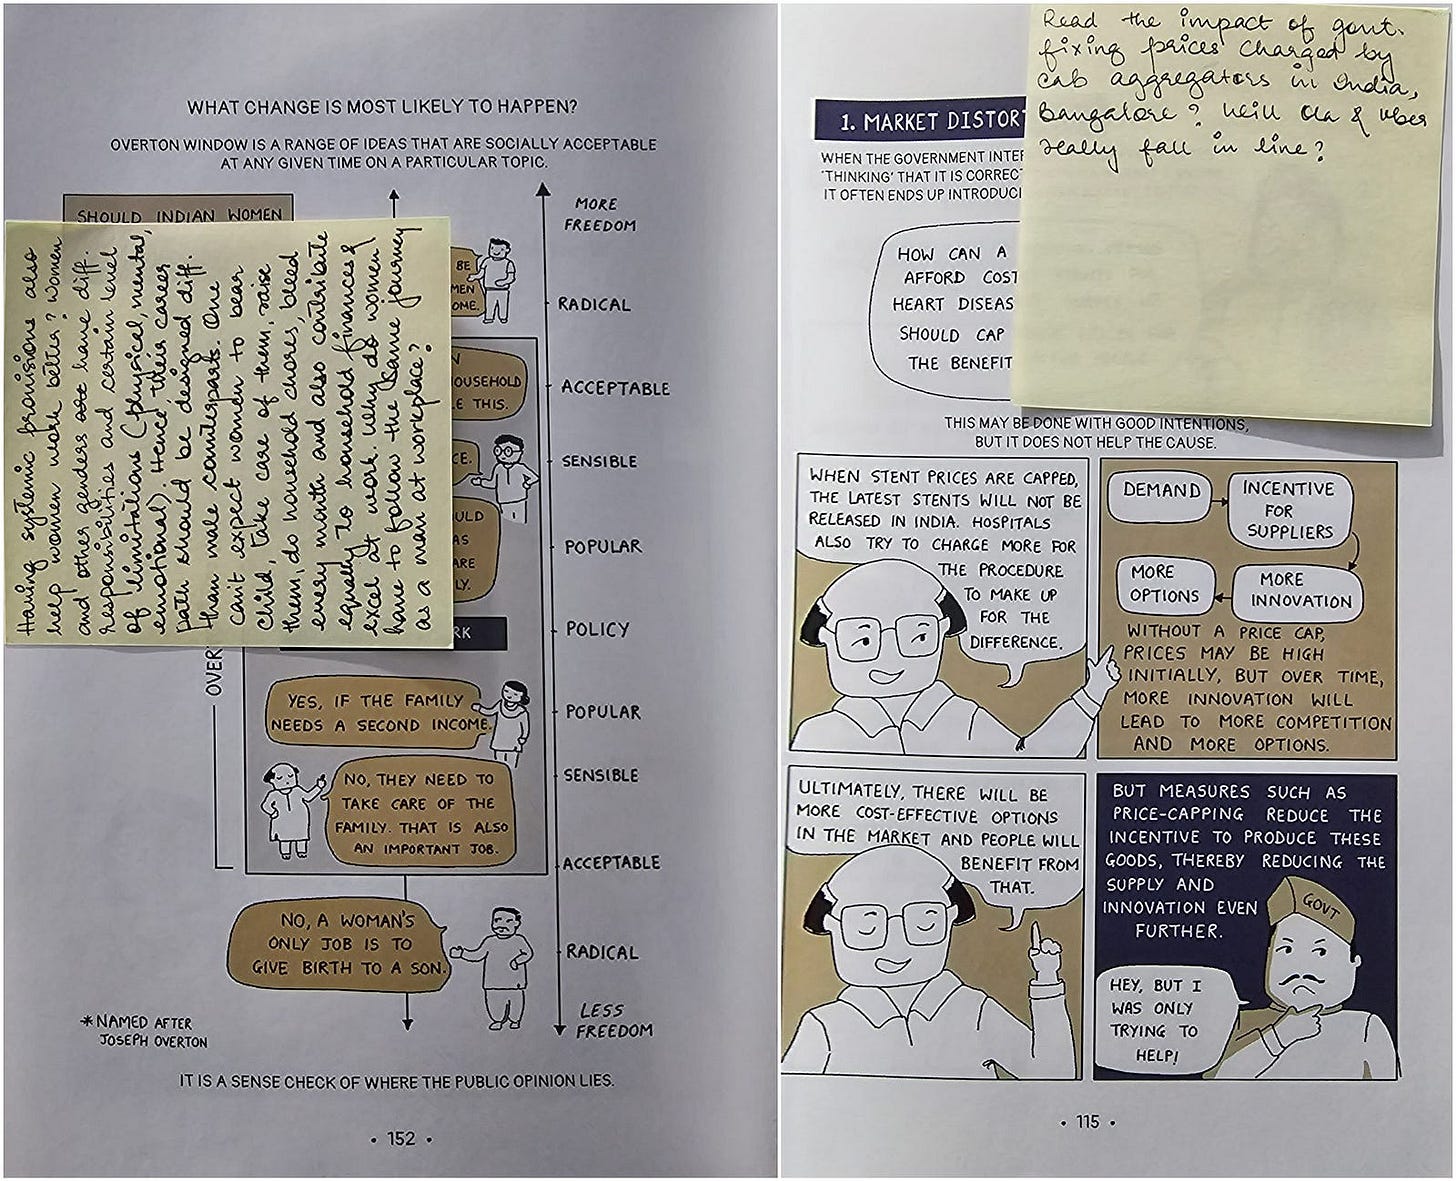 WHAT CHANGE IS MOST LIKELY TO HAPPEN?
OVERTON WINDOW IS A RANGE OF IDEAS THAT ARE SOCIALLY ACCEPTABLE
AT ANY GIVEN TIME ON A PARTICULAR TOPIC.
SHOULD INDIAN WOMEN
Having systemic provisions also
help women work better? Women
and other genders have diff.
responsibilities and certain level
of limitations (physical, mental,
emotional). Hence their careers
path should be designed diff.
than male counterparts. One
can't expect women to bear
child, take care of them, raise
them, do household chores, bleed
every month and also contribute
equally to household finances &
excel at work. Why do women
have to follow the same journey
as a man at workplace?
BE
MEN
OME.
OUSEHOLD
E THIS.
CE.
ULD
AS
ARE
LY.
RK
OVER
YES, IF THE FAMILY
NEEDS A SECOND INCOME.
NO, THEY NEED TO
TAKE CARE OF THE
FAMILY. THAT IS ALSO
AN IMPORTANT JOB.
NO, A WOMAN'S
ONLY JOB IS TO
GIVE BIRTH TO A SON.
MORE
FREEDOM
RADICAL
ACCEPTABLE
SENSIBLE
POPULAR
POLICY
POPULAR
SENSIBLE
ACCEPTABLE
RADICAL
LESS
FREEDOM
*NAMED AFTER
JOSEPH OVERTON
IT IS A SENSE CHECK OF WHERE THE PUBLIC OPINION LIES.
• 152 •
Read the impact of govt.
fixing prices charged by
cab aggregators in India,
Bangalore? Will Ola & Uber
really fall in line?
1. MARKET DISTOR
WHEN THE GOVERNMENT INTER
'THINKING' THAT IT IS CORREC
IT OFTEN ENDS UP INTRODUCI
HOW CAN A
AFFORD COST
HEART DISEAS
SHOULD CAP
THE BENEFIT
THIS MAY BE DONE WITH GOOD INTENTIONS,
BUT IT DOES NOT HELP THE CAUSE.
WHEN STENT PRICES ARE CAPPED,
THE LATEST STENTS WILL NOT BE
RELEASED IN INDIA. HOSPITALS
ALSO TRY TO CHARGE MORE FOR
THE PROCEDURE
TO MAKE UP
FOR THE
DIFFERENCE.
DEMAND
INCENTIVE
FOR
SUPPLIERS
MORE
INNOVATION
MORE
OPTIONS
WITHOUT A PRICE CAP,
PRICES MAY BE HIGH
INITIALLY, BUT OVER TIME,
MORE INNOVATION WILL
LEAD TO MORE COMPETITION
AND MORE OPTIONS.
ULTIMATELY, THERE WILL BE
MORE COST-EFFECTIVE OPTIONS
IN THE MARKET AND PEOPLE WILL
BENEFIT FROM
THAT.
BUT MEASURES SUCH AS
PRICE-CAPPING REDUCE THE
INCENTIVE TO PRODUCE THESE
GOODS, THEREBY REDUCING THE
SUPPLY AND
INNOVATION EVEN
FURTHER.
GOVT
HEY, BUT I
WAS ONLY
TRYING TO
HELP!
• 115 •